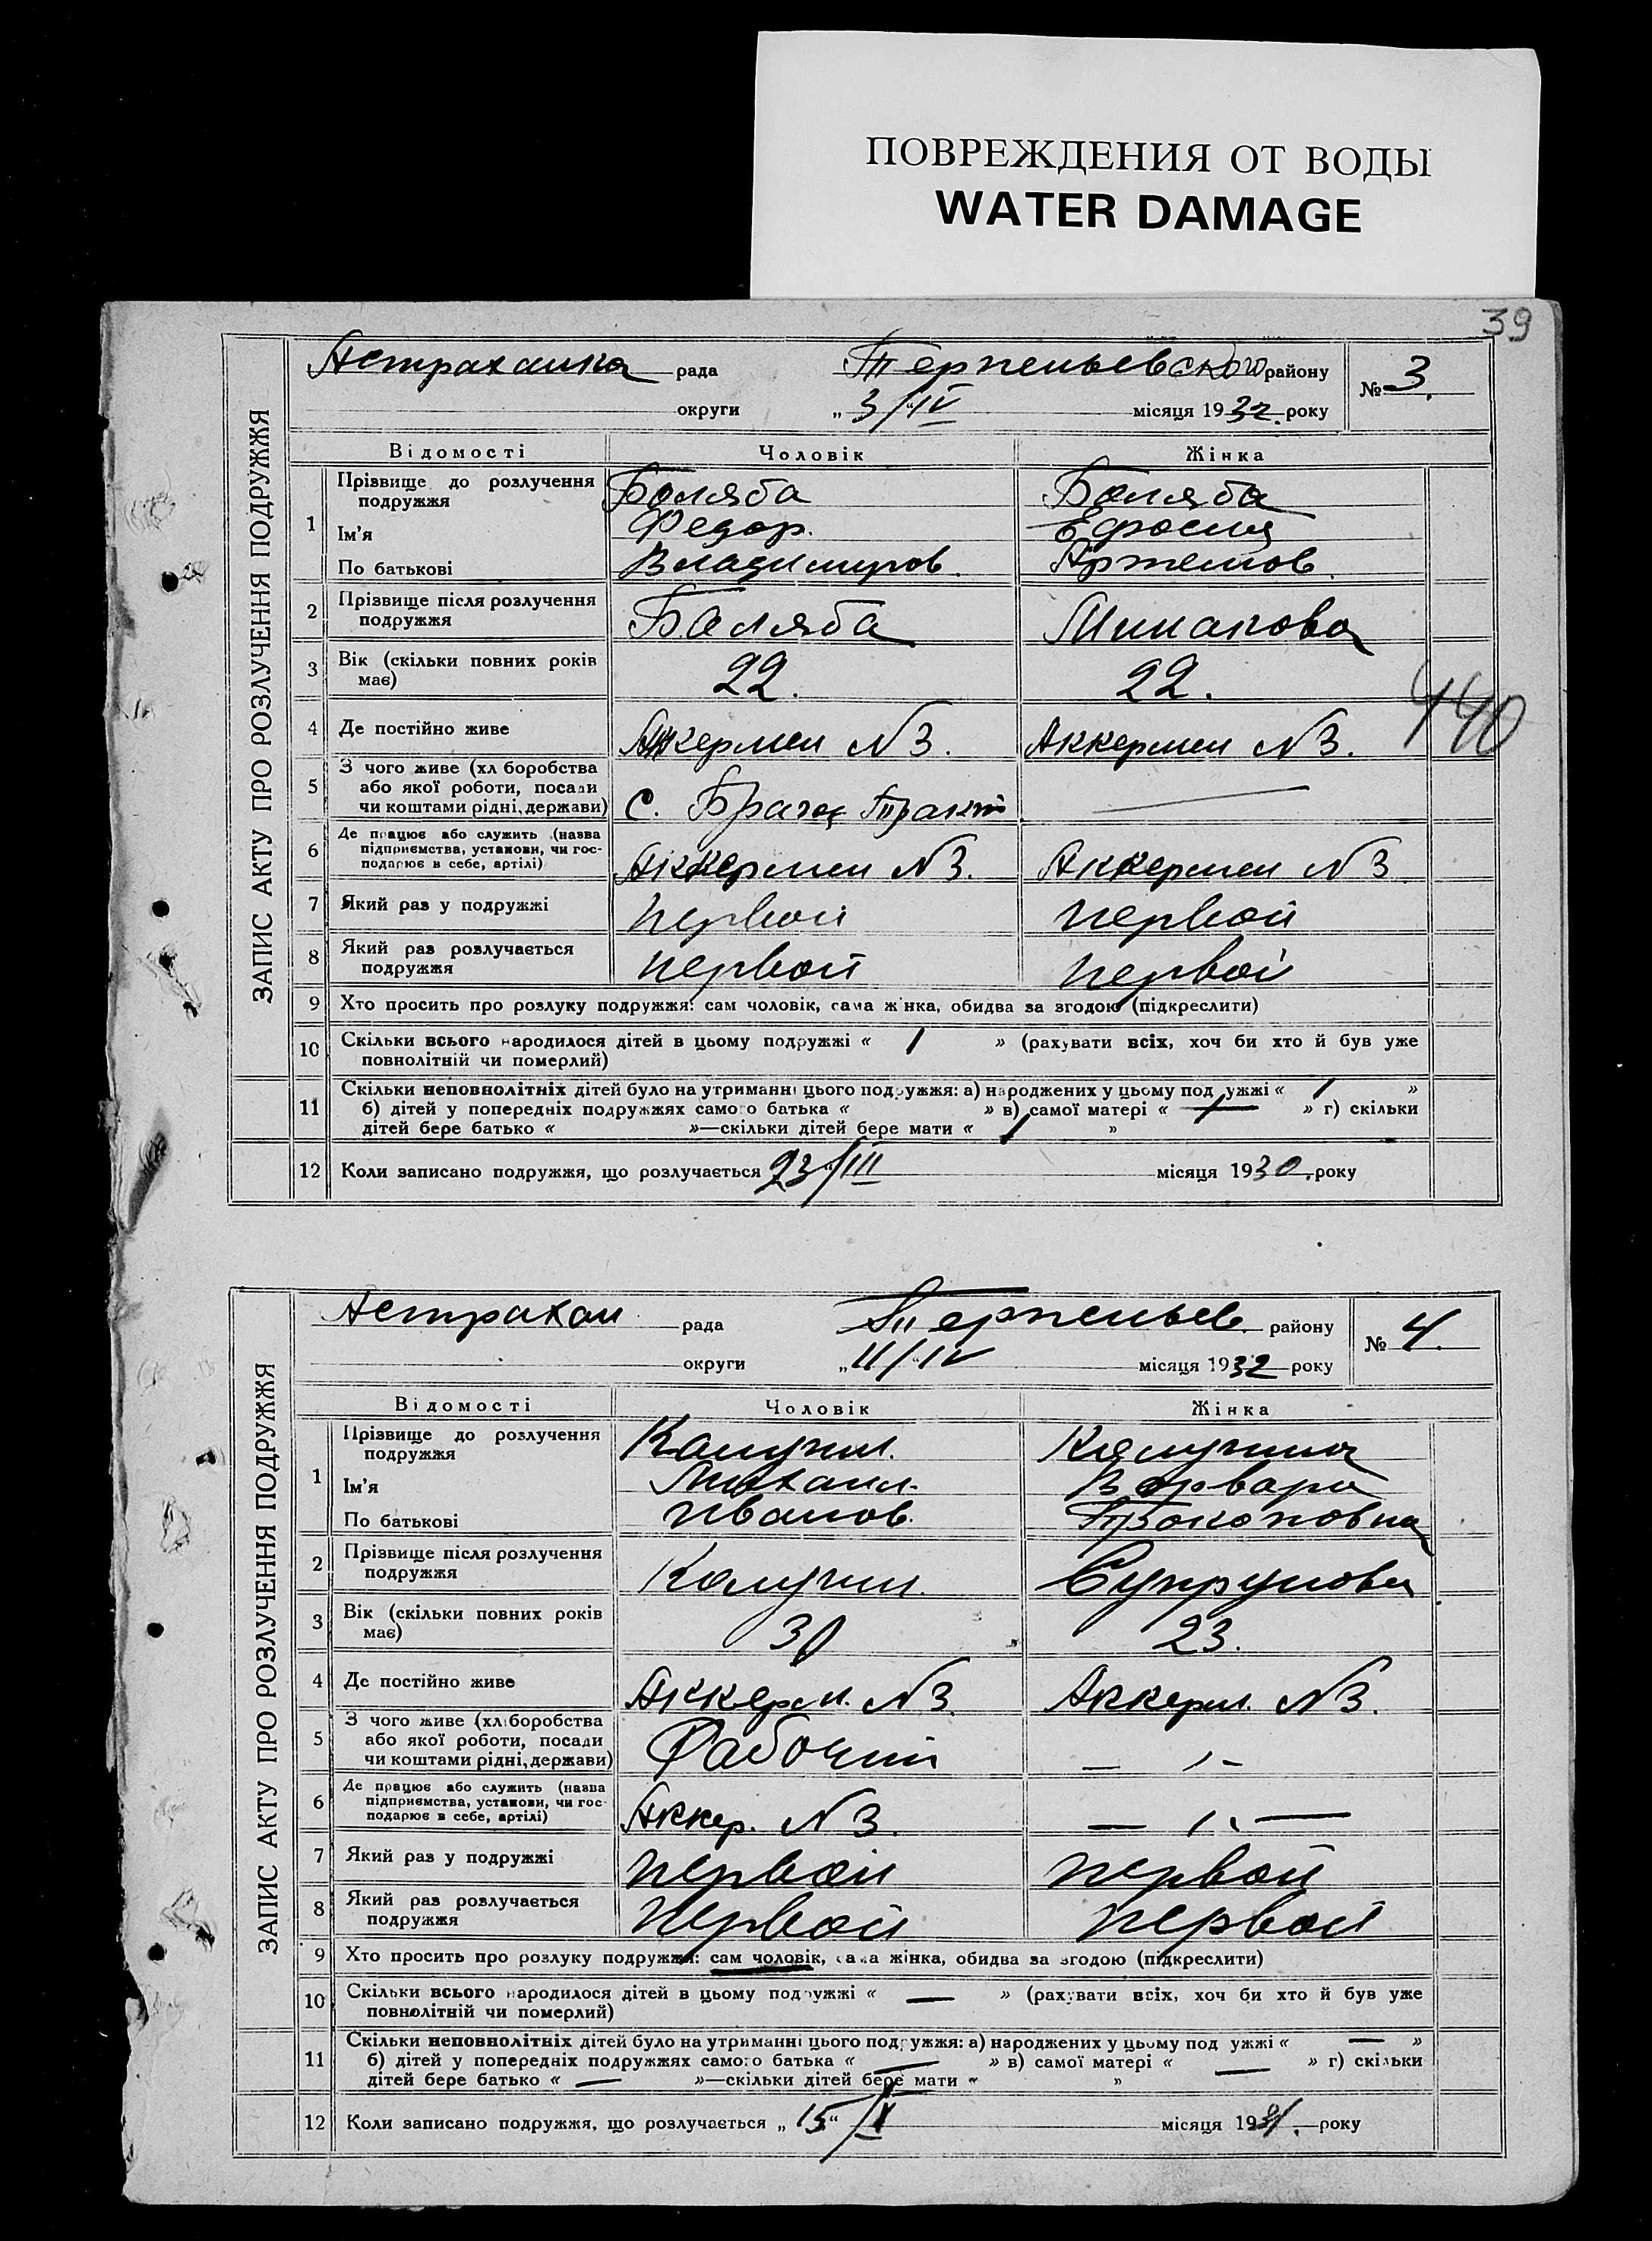 ПОВРЕЖДЕНИЯ ОТ ВОДЫ
WATER DAMAGE
39
ЗАПИС АКТУ ПРО РОЗЛУЧЕННЯ ПОДРУЖЖЯ
Астраханка рада Терпеньевского району № 3.
округи „ 3/IV місяця 1932. року
Відомості Чоловік Жінка
1 Прізвище до розлучення подружжя Баляба Баляба
Ім'я Федор. Ефросия
По батькові Владимиров. Артемов.
2 Прізвище після розлучення подружжя Баляба Минакова
3 Вік (скільки повних років має) 22. 22.
440
4 Де постійно живе Аккермен N 3. Аккермен N 3.
5 З чого живе (хл боробства або якої роботи, посади чи коштами рідні, держави) С. —
6 Де працює або служить (назва підприємства, установи, чи господарює в себе, артілі) Аккермен N 3. Аккермен N 3
7 Який раз у подружжі первой первой
8 Який раз розлучається подружжя первой первой
9 Хто просить про розлуку подружжя: сам чоловік, сама жінка, обидва за згодою (підкреслити)
10 Скільки всього народилося дітей в цьому подружжі « 1 » (рахувати всіх, хоч би хто й був уже
повнолітній чи померлий)
11 Скільки неповнолітніх дітей було на утриманні цього подружжя: а) народжених у цьому подружжі « 1 »
б) дітей у попередніх подружжях самого батька « » в) самої матері « — » г) скільки
дітей бере батько « »—скільки дітей бере мати « 1 »
12 Коли записано подружжя, що розлучається 23/III місяця 1930. року
ЗАПИС АКТУ ПРО РОЗЛУЧЕННЯ ПОДРУЖЖЯ
Астрахан рада Терпеньев. району № 4.
округи „ 11/IV місяця 1932 року
Відомості Чоловік Жінка
1 Прізвище до розлучення подружжя Калугин. Калугина
Ім'я Михаил. Варвара
По батькові Иванов. Прокоповна
2 Прізвище після розлучення подружжя Калугин. Супрунова
3 Вік (скільки повних років має) 30 23.
4 Де постійно живе Аккерм. N 3. Аккерм. N 3.
5 З чого живе (хліборобства або якої роботи, посади чи коштами рідні, держави) Рабочий —
6 Де працює або служить (назва підприємства, установи, чи господарює в себе, артілі) Аккер. N 3. —
7 Який раз у подружжі первой первой
8 Який раз розлучається подружжя первой первой
9 Хто просить про розлуку подружжя: сам чоловік, сама жінка, обидва за згодою (підкреслити)
10 Скільки всього народилося дітей в цьому подружжі « — » (рахувати всіх, хоч би хто й був уже
повнолітній чи померлий)
11 Скільки неповнолітніх дітей було на утриманні цього подружжя: а) народжених у цьому подружжі « — »
б) дітей у попередніх подружжях самого батька « — » в) самої матері « — » г) скільки
дітей бере батько « — »—скільки дітей бере мати « »
12 Коли записано подружжя, що розлучається „ 15“ /X місяця 1931. року